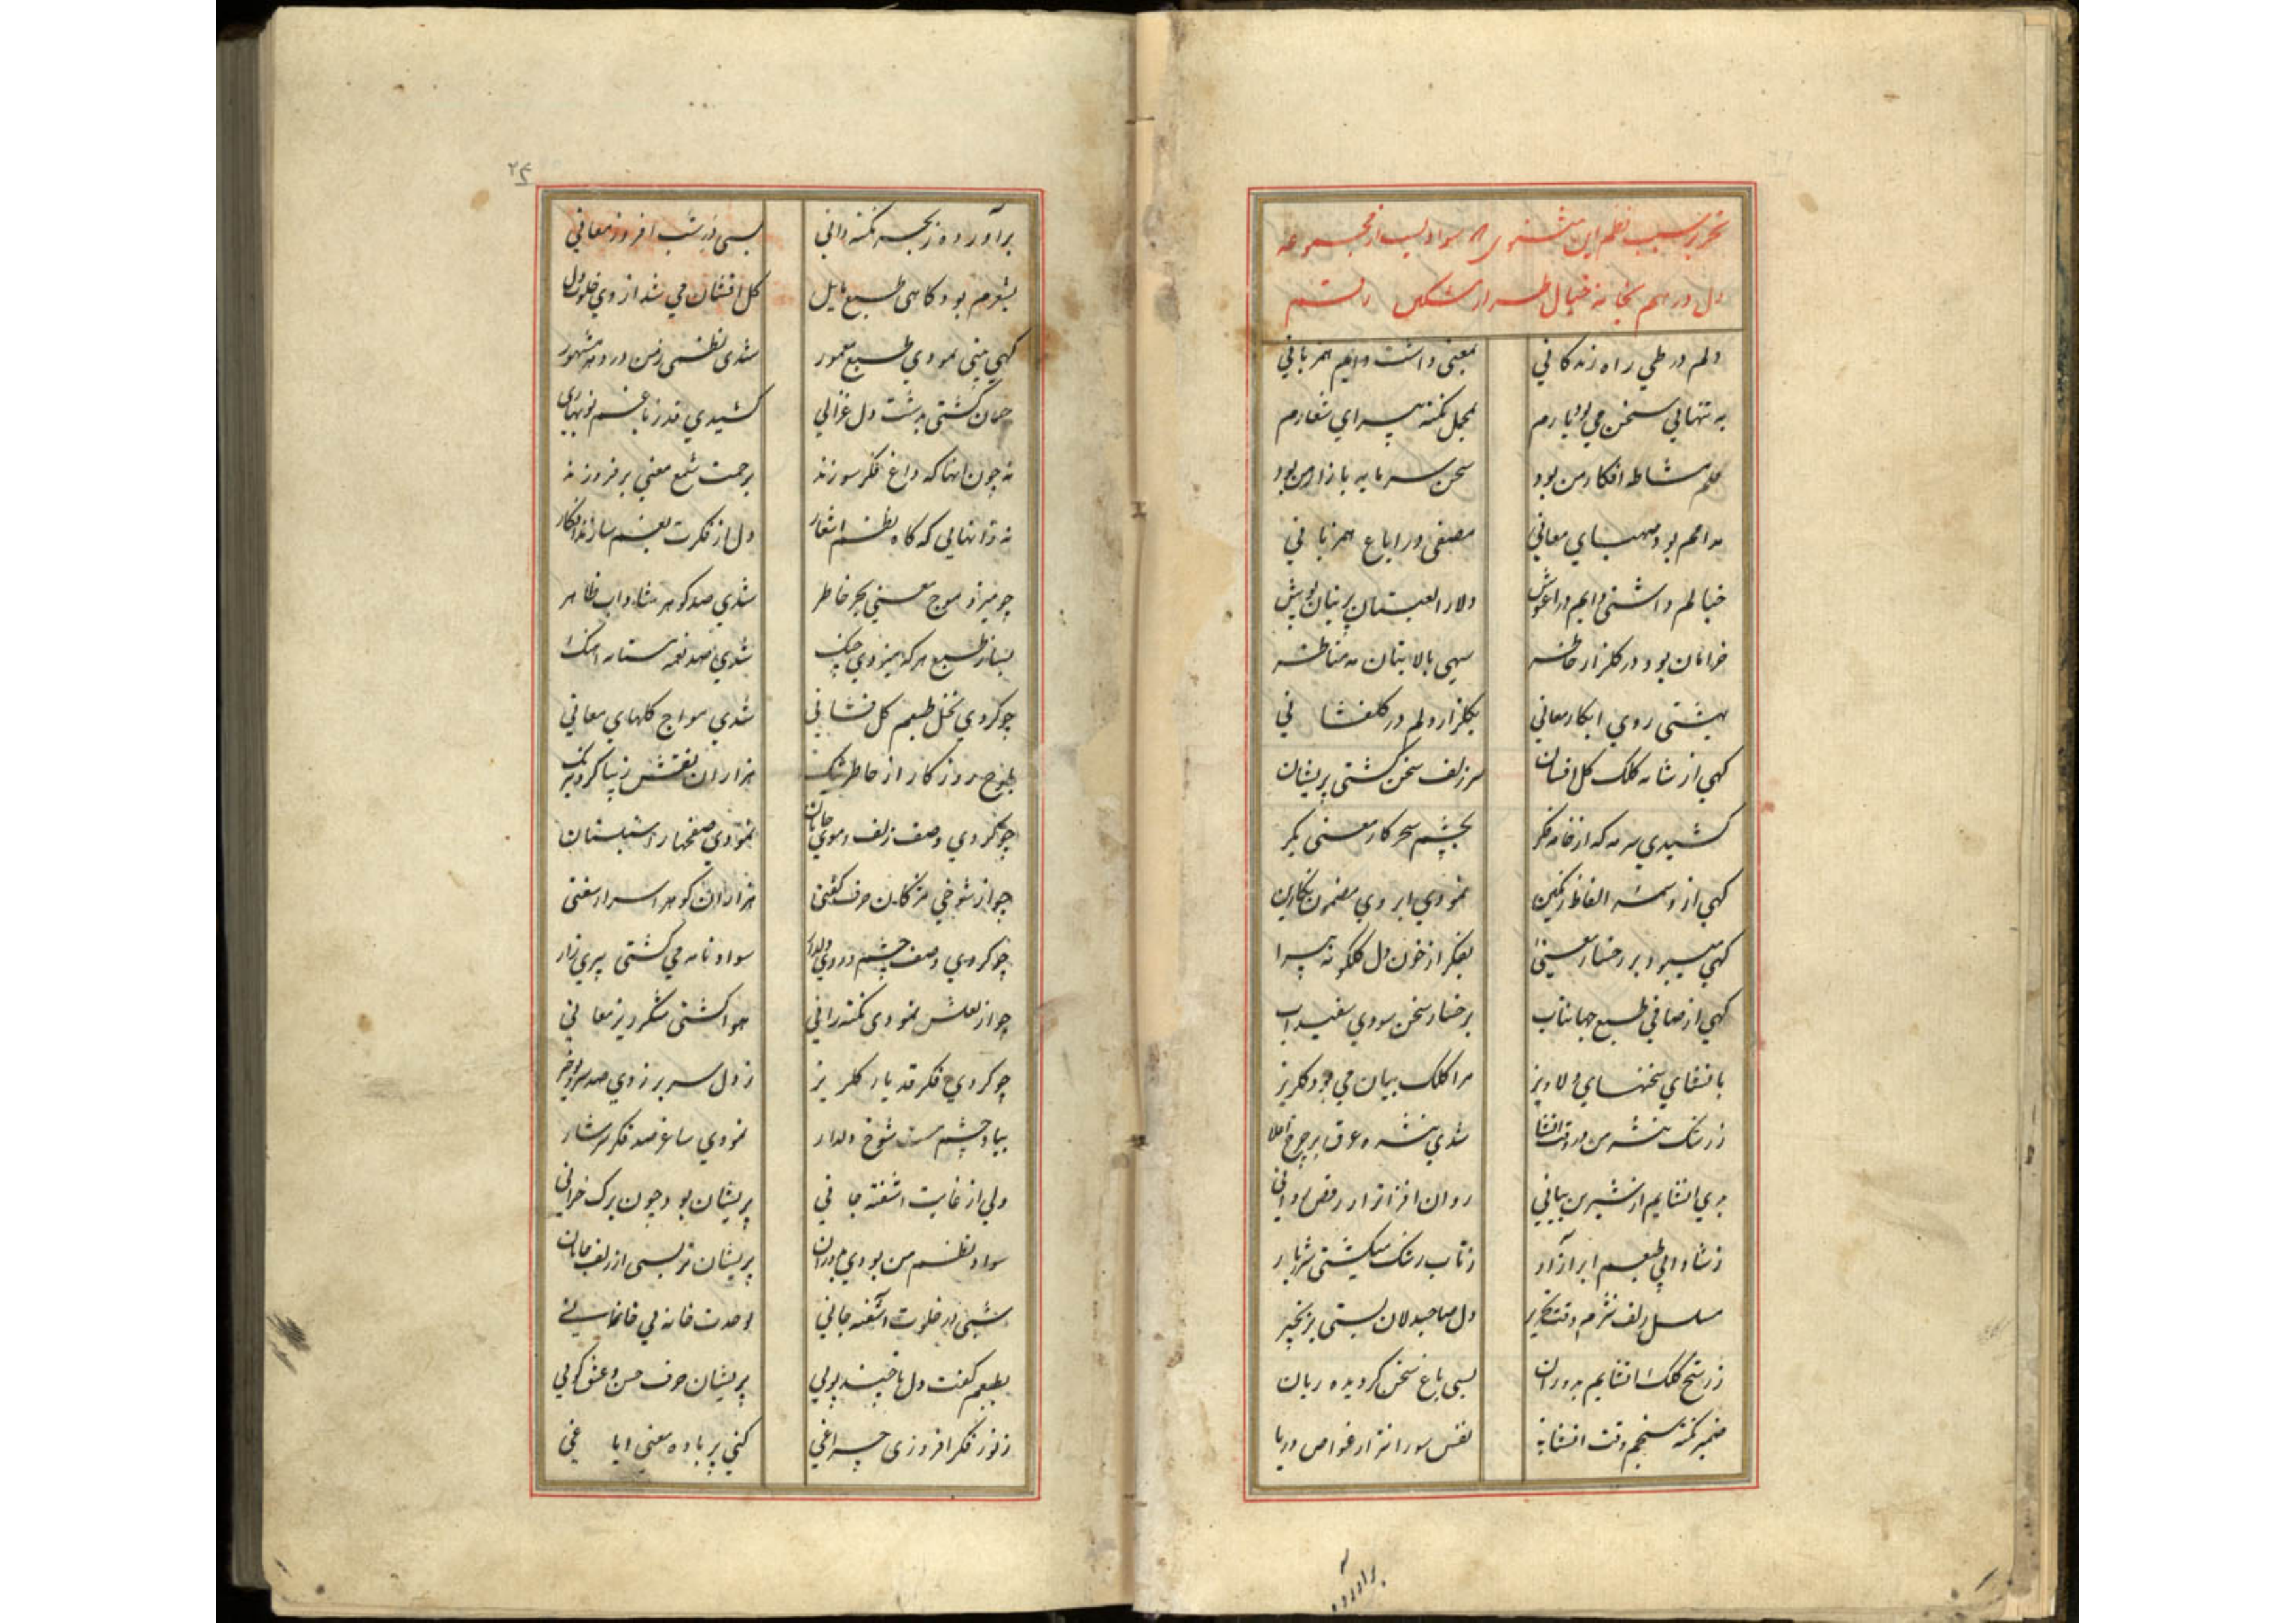 تحریر سبب نظم این مثنوی که سوادیست از مجموعه
دل در هم نجانه خیال طراز مشکین رقم
دلم در طی راه زندکانی بمعنی داشت دایم همزبانی
به تنهایی سخن می بود یارم بمجمل نکته پیرای شعارم
قلم مشاطه افکار من بود سخن سرمایه بازار من بود
مدامم بود صهبای معانی مصفی در ایاغ همزبانی
خیالم داشتی دایم در اغوش دلارا لعبتان پرنیان پوش
خرامان بود در کلزار خاطر سهی بالا بتان مه مناظر
بهشتی روی ابکار معانی بکلزار دلم در کلفشانی
کهی از شانه کلک کل افشان سر زلف سخن کشتی پریشان
کشیدی سرمه که از خامه فکر بچشم سحرکار معنی بکر
کهی از وسمه الفاظ رنکین نمودی ابروی مضمون نکارین
کهی میبرد بر رخسار معنی بفکر از خون دل کلکونه پیرا
کهی از صافی طبع جهانتاب برخسار سخن سودی سفیداب
بانشای سخنهای دلاویز مرا کلک بیان می بود کلریز
ز رشک نثره من در وقت انشا شدی نثره عرق بر چرخ اعلا
پری انشایم از شیرین بیانی روان افزاتر از رقص روانی
ز شادابی طبعم ابر آزار ز تاب رشک میکشتی شرربار
مسلسل زلف نثرم وقت تحریر دل صاحبدلان بستی بزنجیر
ز رشح کلک انشایم بدوران بسی باغ سخن کردیده ریان
ضمیر نکته سنجم وقت انشا نفس سوزانتر از غواص دریا
برآورده
۲۴
برآورده ز بحر نکته دانی بسی در شب افروز معانی
بشعرم بود کاهی طبع مایل کل افشان می شد از وی خلوت دل
کهی بیتی نمودی طبع معمور شدی نظمی ز من در دهر مشهور
چمان کشتی بدشت دل غزالی کشیدی قد ز باغم نوبهاری
نه چون انها که داغ فکر سوزند برحمت شمع معنی برفروزند
نه زانهایی که کاه نظم اشعار دل از فکرت بغم سازند افکار
چو میزد موج معنی بحر خاطر شدی صد کوهر شاداب ظاهر
بساز طبع هر که میزدی چنک شدی صد نغمه مستانه اهنک
چو کردی نخل طبعم کل فشانی شدی مواج کلهای معانی
بلوح روزکار از خاطر تنک هزاران نقش زیبا کرد نیرنک
چو کردی وصف زلف و موی جانان نمودی صفحها را سنبلستان
چو از شوخی مژکان حرف کفتی هزاران کوهر اسرار سفتی
چو کردی وصف چشم و روی دلدار سواد نامه می کشتی پری زار
چو از لعلش نمودی نکته رانی هوا کشتی شکرریز معانی
چو کردی فکر قد یار کلریز ز دل سر برزدی صد سرو نوخیز
بیاد چشم مست شوخ دلدار نمودی ساغر صد فکر سرشار
ولی از غایت اشفته جانی پریشان بود چون برک خزانی
سواد نظم من بودی بدوران پریشان تر بسی از زلف جانان
شبی در خلوت آشفته جانی بوحدت خانه بی خانمانی
بطبعم کفت دل تا چند پویی پریشان حرف حسن و عشق کویی
ز نور فکر افروزی چراغی کنی پر باده معنی ایاغی